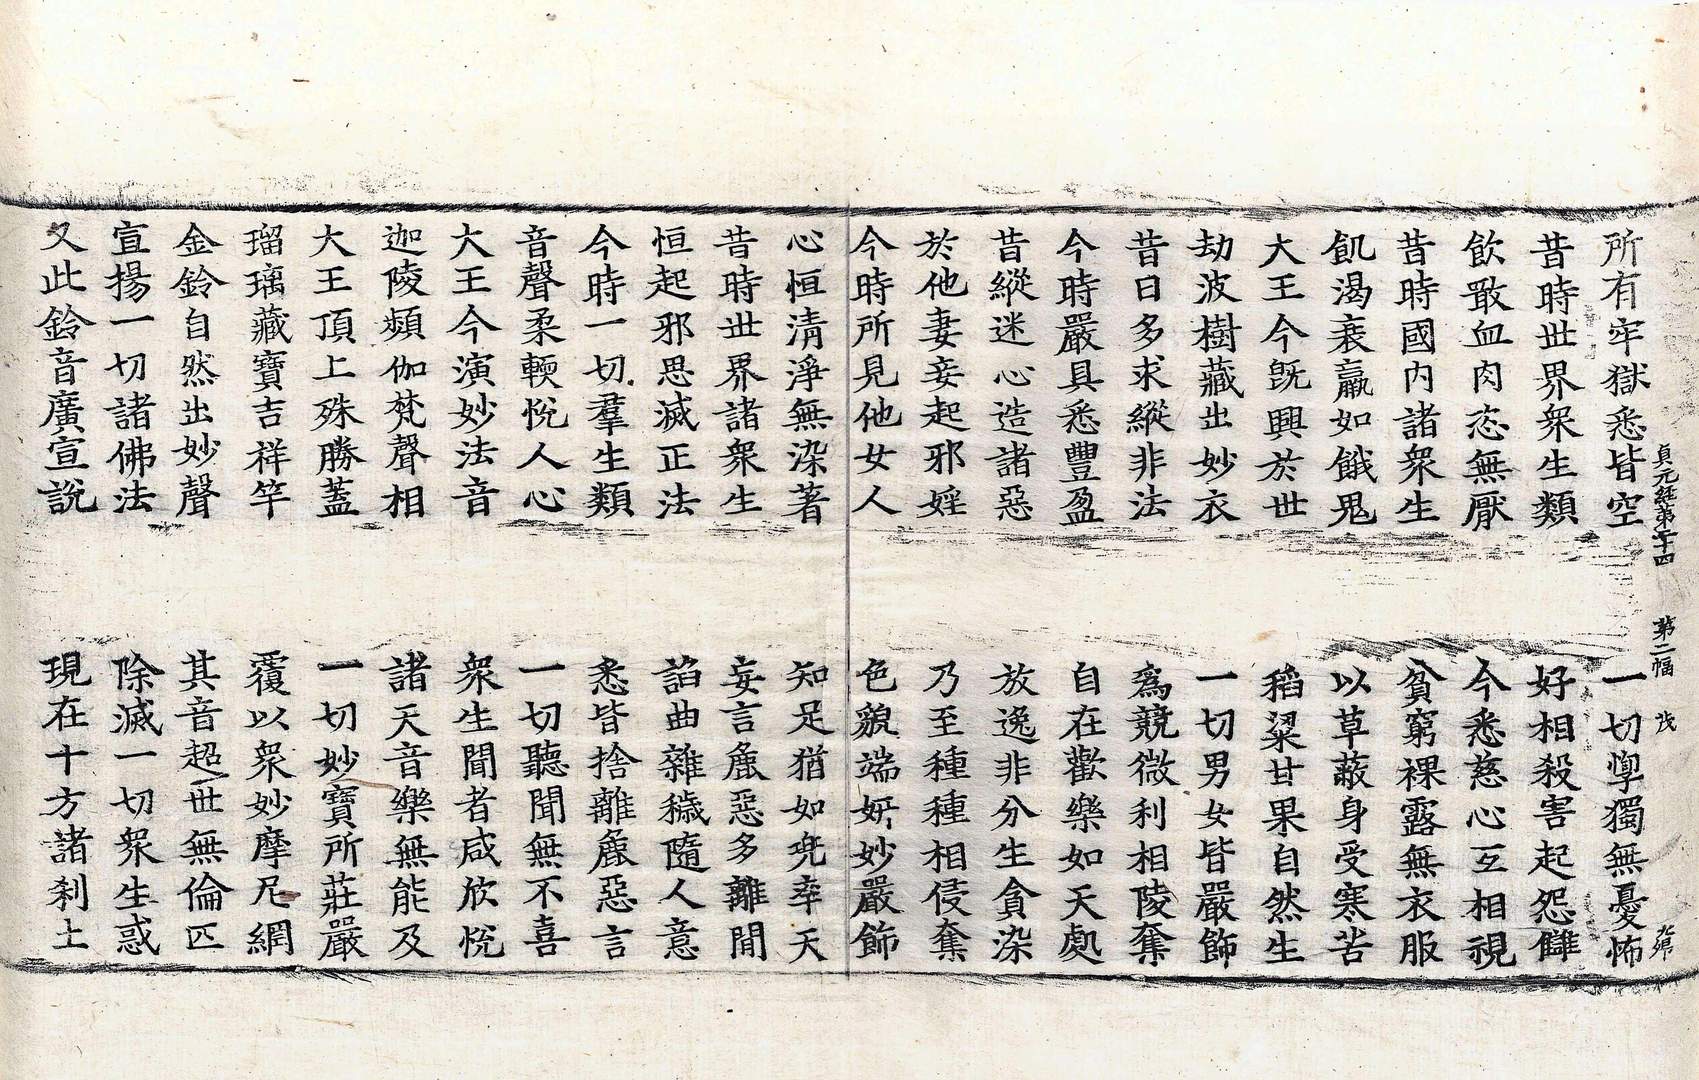 貞元経第二十四　第二幅　戊
所有牢獄悉皆空　一切惸獨無憂怖
昔時世界衆生類　好相殺害起怨讎
飲噉血肉恣無厭　今悉慈心互相視
昔時國内諸衆生　貧窮裸露無衣服
飢渴衰羸如餓鬼　以草蔽身受寒苦
大王今既興於世　稻粱甘果自然生
劫波樹藏出妙衣　一切男女皆嚴飾
昔日多求縱非法　爲競微利相陵奪
今時嚴具悉豐盈　自在歡樂如天處
昔縱迷心造諸惡　放逸非分生貪染
於他妻妾起邪婬　乃至種種相侵奪
今時所見他女人　色貌端姸妙嚴飾
心恒清淨無染著　知足猶如兜率天
昔時世界諸衆生　妄言麁惡多離間
恒起邪思滅正法　諂曲雜穢隨人意
今時一切羣生類　悉皆捨離麁惡言
音聲柔輭悅人心　一切聽聞無不喜
大王今演妙法音　衆生聞者咸欣悅
迦陵頻伽梵聲相　諸天音樂無能及
大王頂上殊勝蓋　一切妙寶所莊嚴
瑠璃藏寶吉祥竿　覆以衆妙摩尼網
金鈴自然出妙聲　其音超世無倫匹
宣揚一切諸佛法　除滅一切衆生惑
又此鈴音廣宣說　現在十方諸刹土